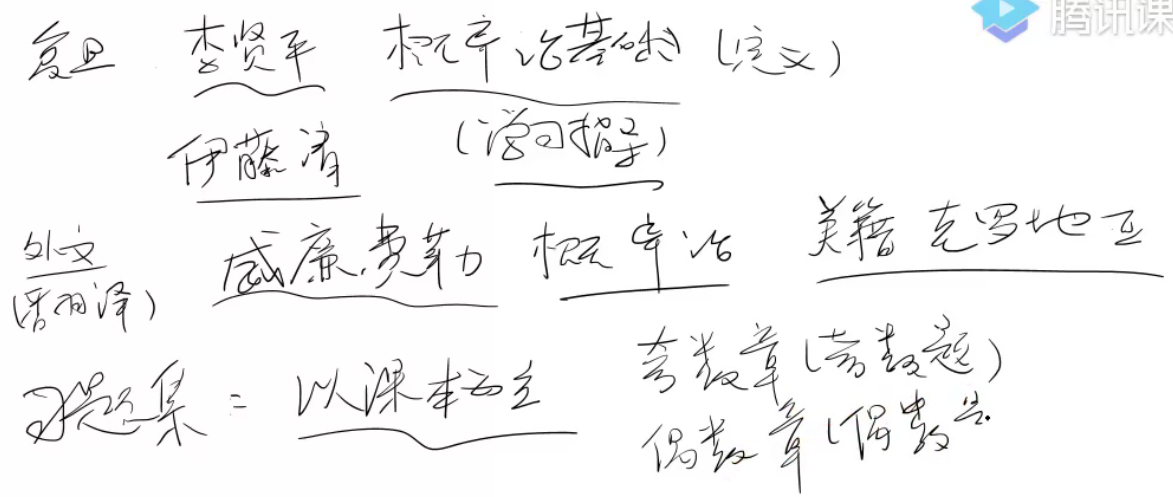 腾讯课
复旦 李贤平 概率论基础 (定义)
伊藤清 (学习指导)
外文 威廉.费勒 概率论 美籍克罗地亚
习题集: 以课本为主 奇数章(奇数题)
偶数章(偶数